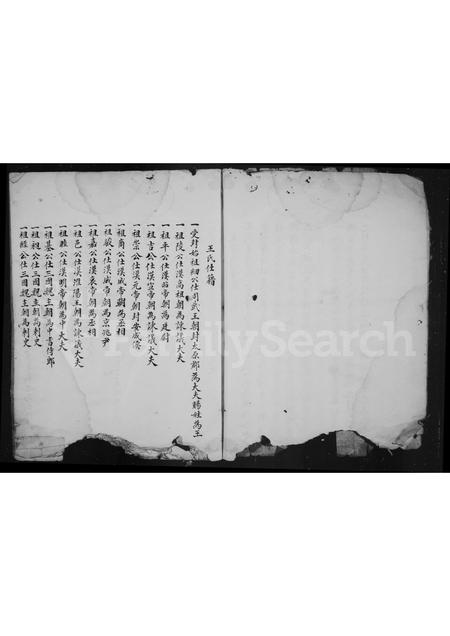 王氏仕籍
一受封始祖綱公仕周武王朝封太原郡為大夫賜姓為王
一祖陵公仕漢高祖朝為諫議大夫
一祖平公仕漢昭帝朝為廷尉
一祖吉公仕漢宣帝朝為諫議大夫
一祖崇公仕漢元帝朝封安成
一祖商公仕漢成帝朝為丞相
一祖公仕漢成帝朝為京兆尹
一祖嘉公仕漢哀帝朝為丞相
一祖邑公仕漢淮陽王朝為諫議大夫
一祖睦公仕漢明帝朝為中大夫
一祖基公仕三國魏主朝為中書侍郎
一祖祖公仕三國魏主朝為刺史
一祖公仕三國魏主朝為刺史
FamilySearch